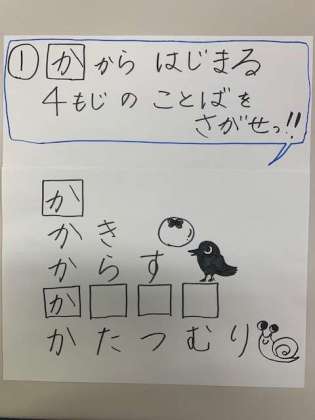 ① か から はじまる
4もじ の ことば を
さがせっ!!
か
かき
からす
か□□□
かたつむり